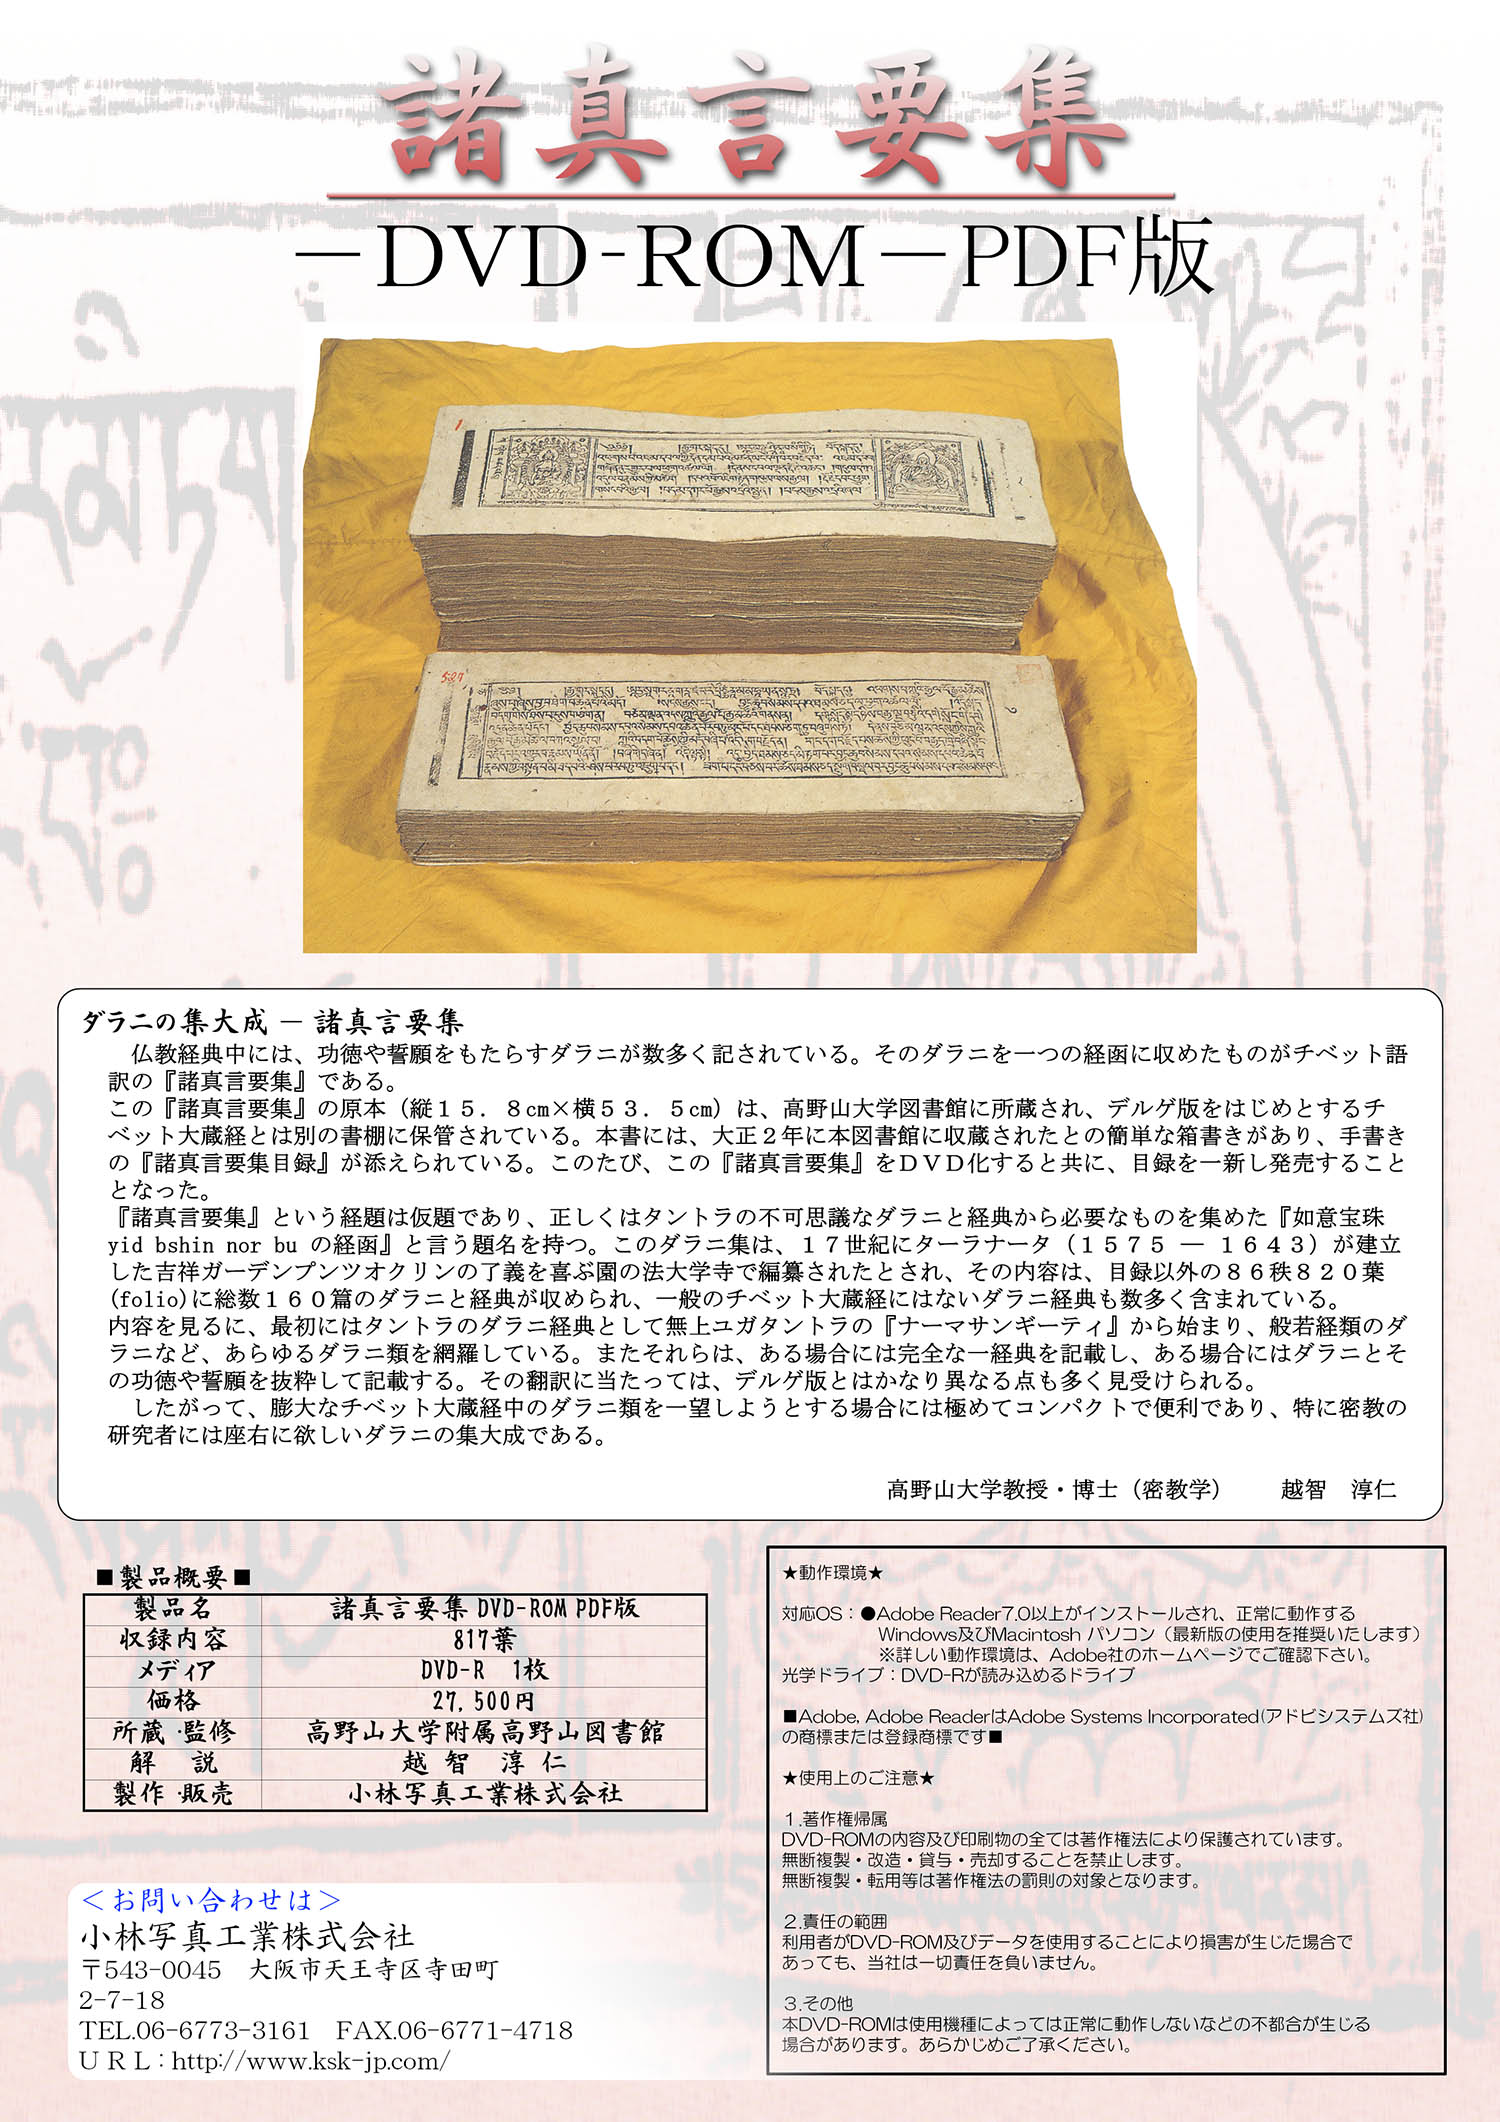 諸真言要集
－DVD-ROM－PDF版
1
527
ダラニの集大成 － 諸真言要集
仏教経典中には、功徳や誓願をもたらすダラニが数多く記されている。そのダラニを一つの経函に収めたものがチベット語
訳の『諸真言要集』である。
この『諸真言要集』の原本（縦１５．８cm×横５３．５cm）は、高野山大学図書館に所蔵され、デルゲ版をはじめとするチ
ベット大蔵経とは別の書棚に保管されている。本書には、大正２年に本図書館に収蔵されたとの簡単な箱書きがあり、手書き
の『諸真言要集目録』が添えられている。このたび、この『諸真言要集』をＤＶＤ化すると共に、目録を一新し発売すること
となった。
『諸真言要集』という経題は仮題であり、正しくはタントラの不可思議なダラニと経典から必要なものを集めた『如意宝珠
yid bshin nor bu の経函』と言う題名を持つ。このダラニ集は、１７世紀にターラナータ（１５７５ ― １６４３）が建立
した吉祥ガーデンプンツオクリンの了義を喜ぶ園の法大学寺で編纂されたとされ、その内容は、目録以外の８６秩８２０葉
(folio)に総数１６０篇のダラニと経典が収められ、一般のチベット大蔵経にはないダラニ経典も数多く含まれている。
内容を見るに、最初にはタントラのダラニ経典として無上ユガタントラの『ナーマサンギーティ』から始まり、般若経類のダ
ラニなど、あらゆるダラニ類を網羅している。またそれらは、ある場合には完全な一経典を記載し、ある場合にはダラニとそ
の功徳や誓願を抜粋して記載する。その翻訳に当たっては、デルゲ版とはかなり異なる点も多く見受けられる。
したがって、膨大なチベット大蔵経中のダラニ類を一望しようとする場合には極めてコンパクトで便利であり、特に密教の
研究者には座右に欲しいダラニの集大成である。
高野山大学教授・博士（密教学） 越智 淳仁
■製品概要■
製品名 諸真言要集 DVD-ROM PDF版
収録内容 817葉
メディア DVD-R 1枚
価格 27,500円
所蔵・監修 高野山大学附属高野山図書館
解 説 越 智 淳 仁
製作・販売 小林写真工業株式会社
＜お問い合わせは＞
小林写真工業株式会社
〒543-0045 大阪市天王寺区寺田町
2-7-18
TEL.06-6773-3161 FAX.06-6771-4718
ＵＲＬ：http://www.ksk-jp.com/
★動作環境★
対応OS：●Adobe Reader7.0以上がインストールされ、正常に動作する
Windows及びMacintosh パソコン（最新版の使用を推奨いたします）
※詳しい動作環境は、Adobe社のホームページでご確認下さい。
光学ドライブ：DVD-Rが読み込めるドライブ
■Adobe, Adobe ReaderはAdobe Systems Incorporated(アドビシステムズ社)
の商標または登録商標です■
★使用上のご注意★
１.著作権帰属
DVD-ROMの内容及び印刷物の全ては著作権法により保護されています。
無断複製・改造・貸与・売却することを禁止します。
無断複製・転用等は著作権法の罰則の対象となります。
２.責任の範囲
利用者がDVD-ROM及びデータを使用することにより損害が生じた場合で
あっても、当社は一切責任を負いません。
３.その他
本DVD-ROMは使用機種によっては正常に動作しないなどの不都合が生じる
場合があります。あらかじめご了承ください。